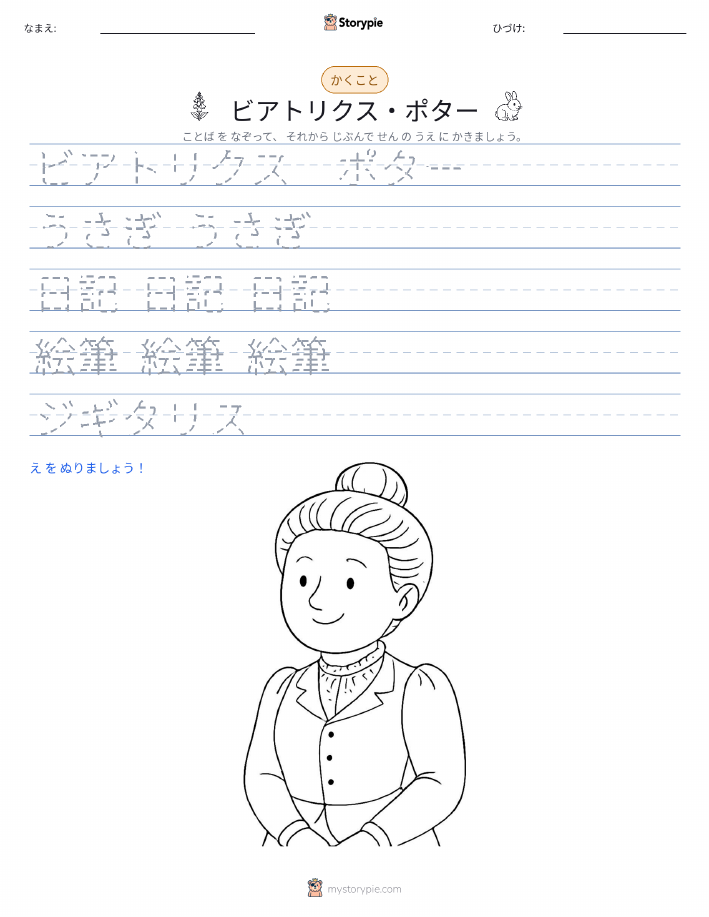 なまえ:
Storypie
ひづけ:
かくこと
ビアトリクス・ポター
ことば を なぞって、 それから じぶんで せん の うえ に かきましょう。
ビアトリクス ポター
うさぎ うさぎ
日記 日記 日記
絵筆 絵筆 絵筆
ジギタリス
え を ぬりましょう！
mystorypie.com